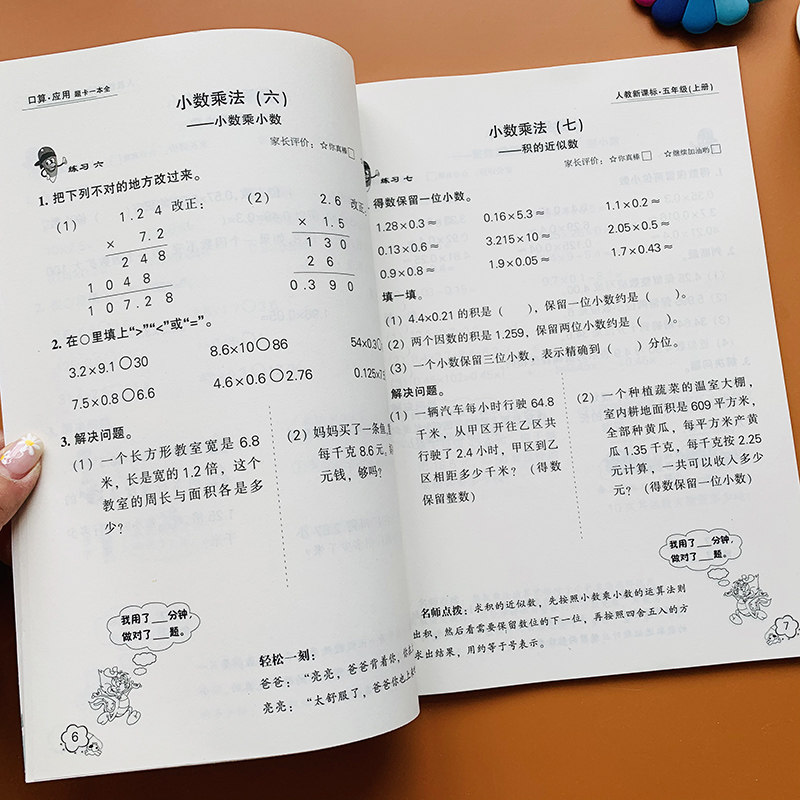 口算·应用 题卡一本全
小数乘法（六）
——小数乘小数
家长评价：☆你真棒□
练习 六
1. 把下列不对的地方改过来。
（1） 1.2 4 改正：
× 7.2
2 4 8
1 0 4 8
1 0 7.2 8
（2） 2.6 改
× 1.5
1 3 0
2 6
0.3 9 0
2. 在○里填上“>”“<”或“=”。
3.2×9.1○30 8.6×10○86 54×0.3
7.5×0.8○6.6 4.6×0.6○2.76 0.125×
3. 解决问题。
（1）一个长方形教室宽是 6.8
米，长是宽的 1.2 倍，这个
教室的周长与面积各是多
少？
（2）妈妈买了一条鱼
每千克 8.6 元，
元钱，够吗？
我用了___分钟，
做对了___题。
轻松一刻：
爸爸：“亮亮，爸爸背着你，你
亮亮：“太舒服了，爸爸你也上
6
人教新课标·五年级（上册）
小数乘法（七）
——积的近似数
家长评价：☆你真棒□ ☆继续加油哟□
练习 七
得数保留一位小数。
1.28×0.3≈ 0.16×5.3≈ 1.1×0.2≈
0.13×0.6≈ 3.215×10≈ 2.05×0.5≈
0.9×0.8≈ 1.9×0.05≈ 1.7×0.43≈
填一填。
（1）4.4×0.21 的积是（ ），保留一位小数约是（ ）。
（2）两个因数的积是 1.259，保留两位小数约是（ ）。
（3）一个小数保留三位小数，表示精确到（ ）分位。
解决问题。
（1）一辆汽车每小时行驶 64.8
千米，从甲区开往乙区共
行驶了 2.4 小时，甲区到乙
区相距多少千米？（得数
保留整数）
（2）一个种植蔬菜的温室大棚，
室内耕地面积是 609 平方米，
全部种黄瓜，每平方米产黄
瓜 1.35 千克，每千克按 2.25
元计算，一共可以收入多少
元？（得数保留一位小数）
我用了___分钟，
做对了___题。
名师点拨：求积的近似数，先按照小数乘小数的运算法则
出积，然后看需要保留数位的下一位，再按照四舍五入的方
求出结果，用约等于号表示。
7